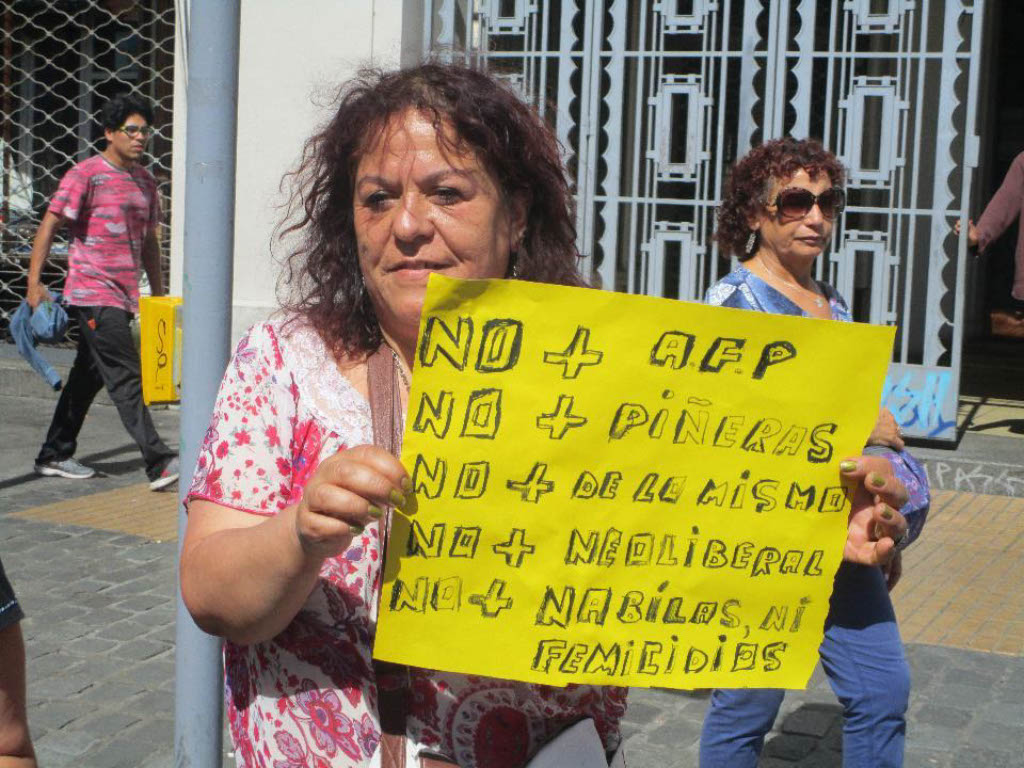 NO + A.F.P
NO + PIÑERAS
NO + DE LO MISMO
NO + NEOLIBERAL
NO + NABILAS, NI
FEMICIDIOS